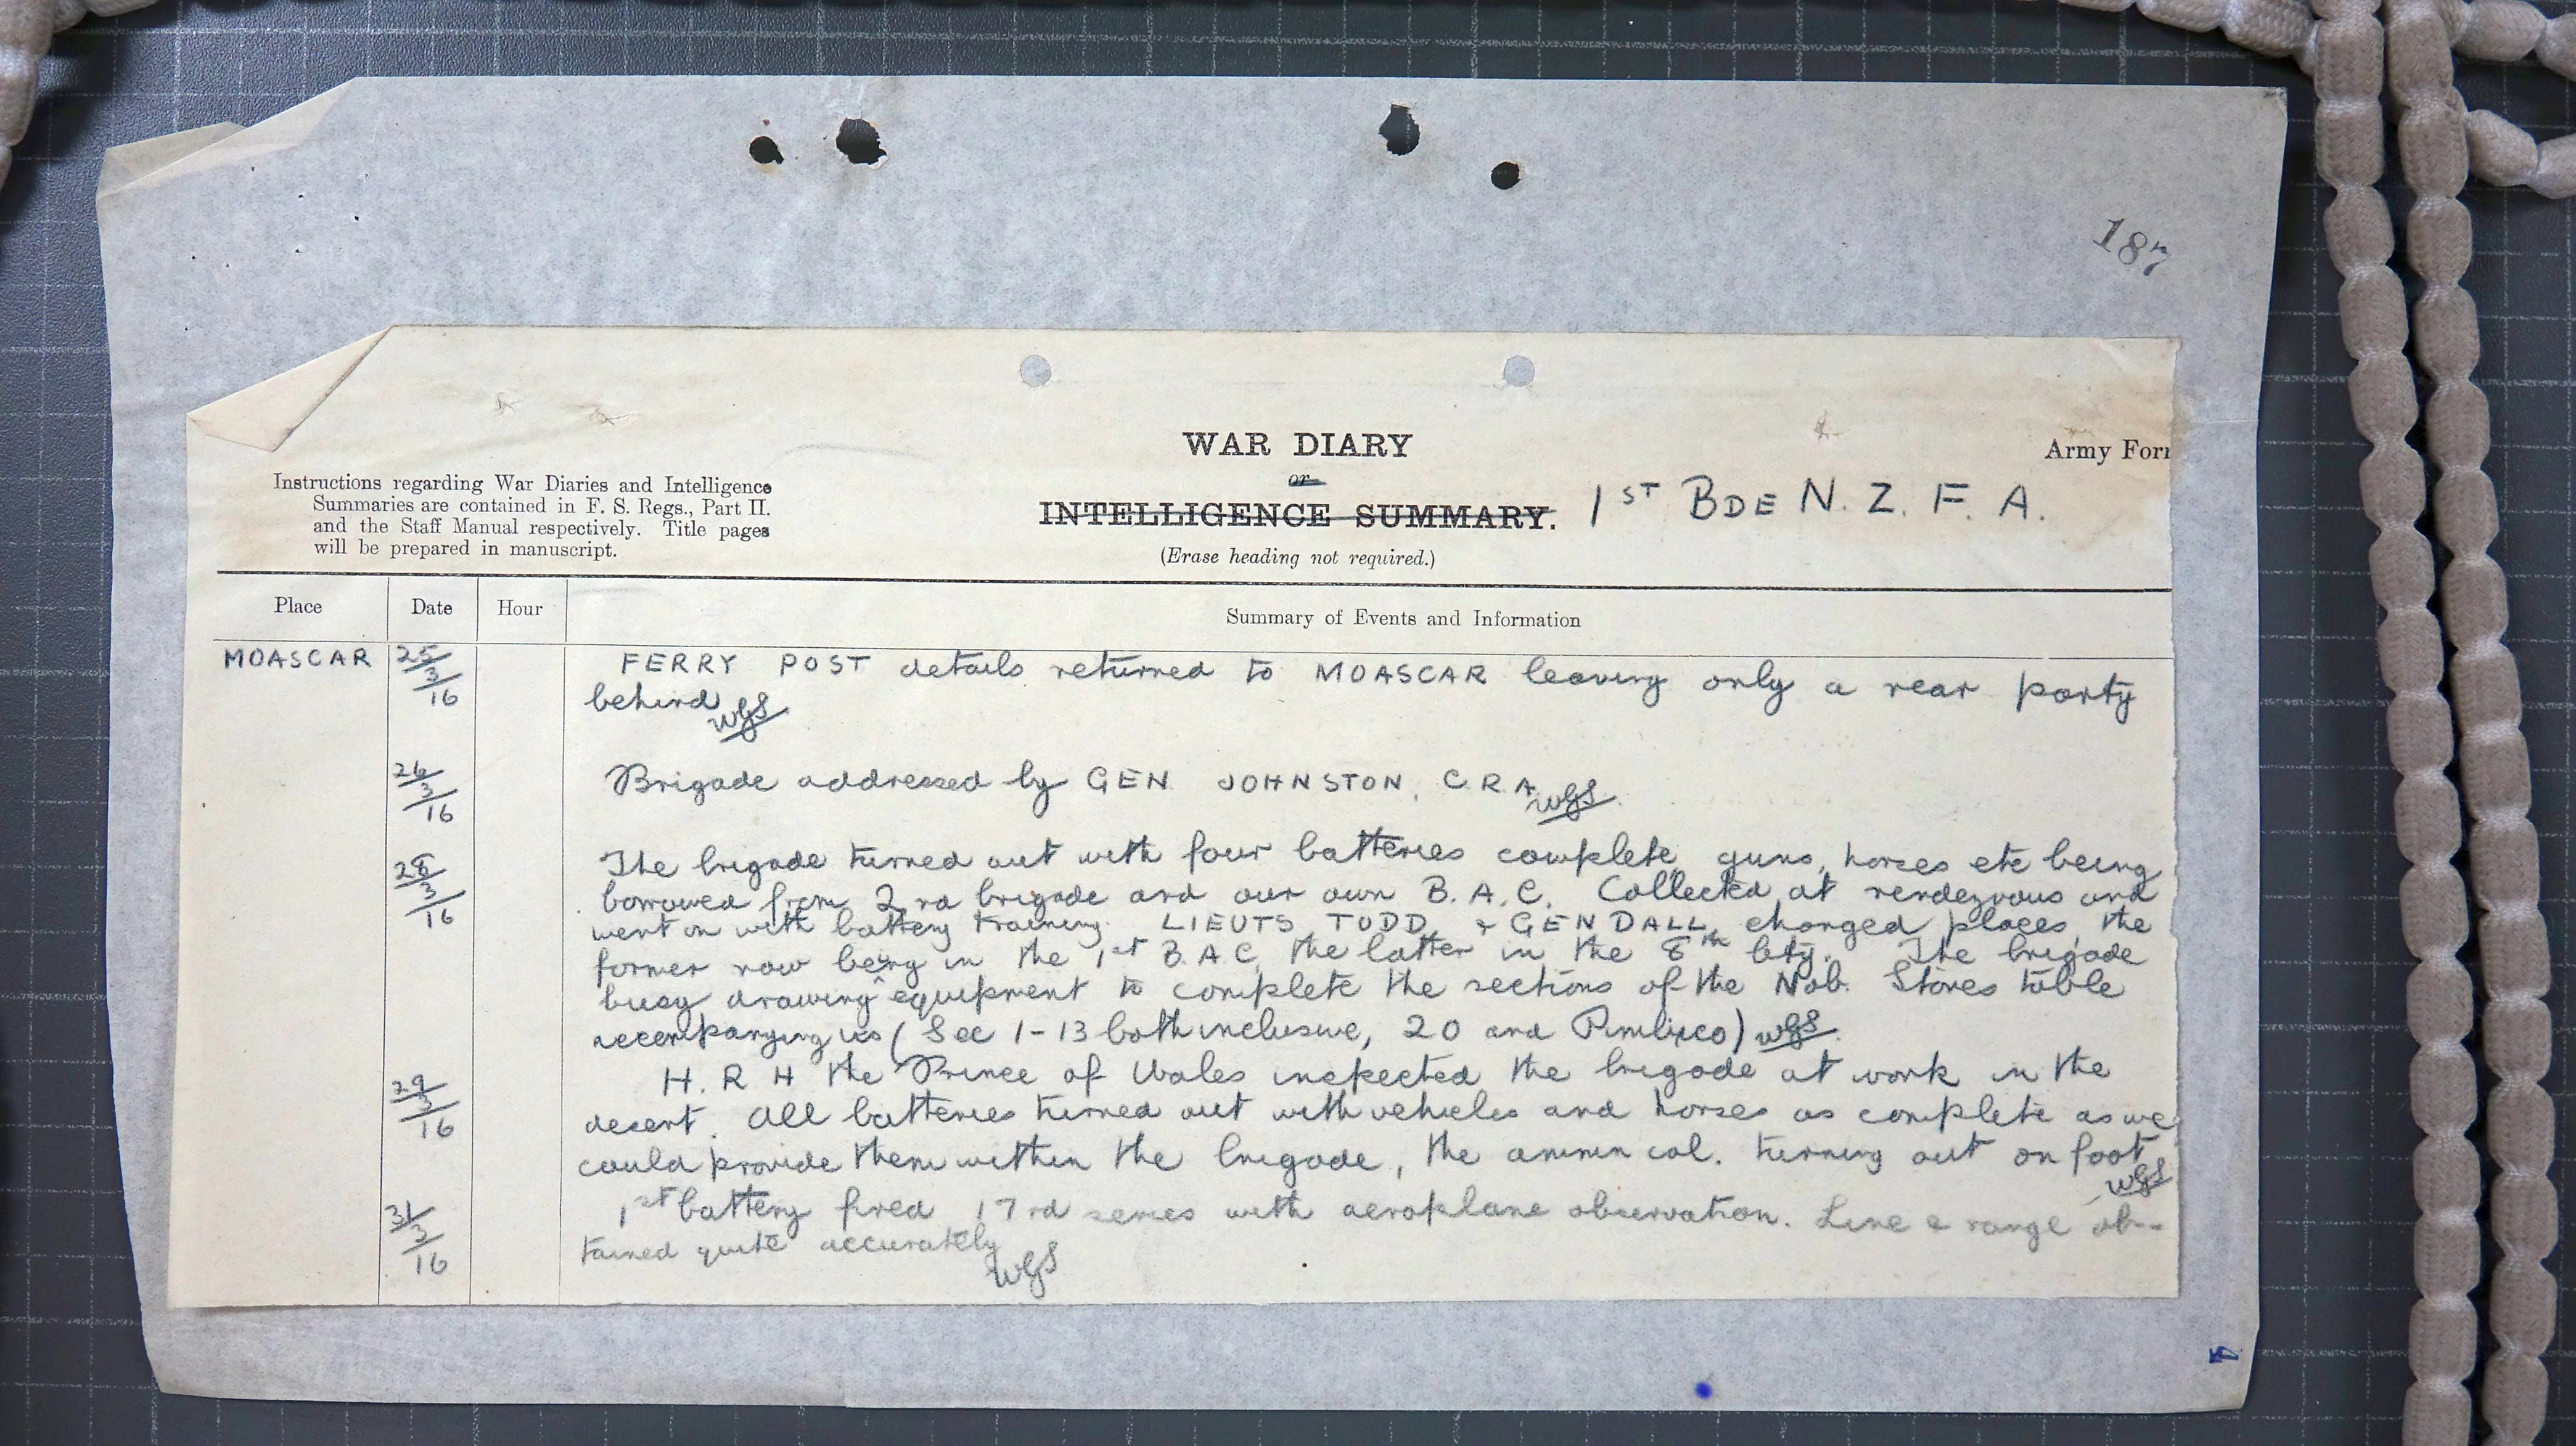 187
WAR DIARY
or
INTELLIGENCE SUMMARY.
(Erase heading not required.)
1ST BDE N. Z. F. A.
Army For
Instructions regarding War Diaries and Intelligence
Summaries are contained in F. S. Regs., Part II.
and the Staff Manual respectively. Title pages
will be prepared in manuscript.
Place Date Hour Summary of Events and Information
MOASCAR 25/3/16 FERRY POST details returned to MOASCAR leaving only a rear party
behind WGS
26/3/16 Brigade addressed by GEN JOHNSTON, C R A WGS
28/3/16 The brigade turned out with four batteries complete, guns, horses etc being
borrowed from 2nd brigade and our own B. A. C. Collected at rendezvous and
went on with battery training. LIEUTS TODD & GENDALL changed places, the
former now being in the 1st B A C, the latter in the 8th bty. The brigade
busy drawing equipment to complete the sections of the Mob. Stores table
accompanying us (Sec 1-13 both inclusive, 20 and Pimlico) WGS
29/3/16 H. R H the Prince of Wales inspected the brigade at work in the
desert. All batteries turned out with vehicles and horses as complete as we
could provide them within the brigade, the ammn col. turning out on foot
WGS
31/3/16 1st battery fired 17 rd series with aeroplane observation. Line & range ob-
tained quite accurately
WGS